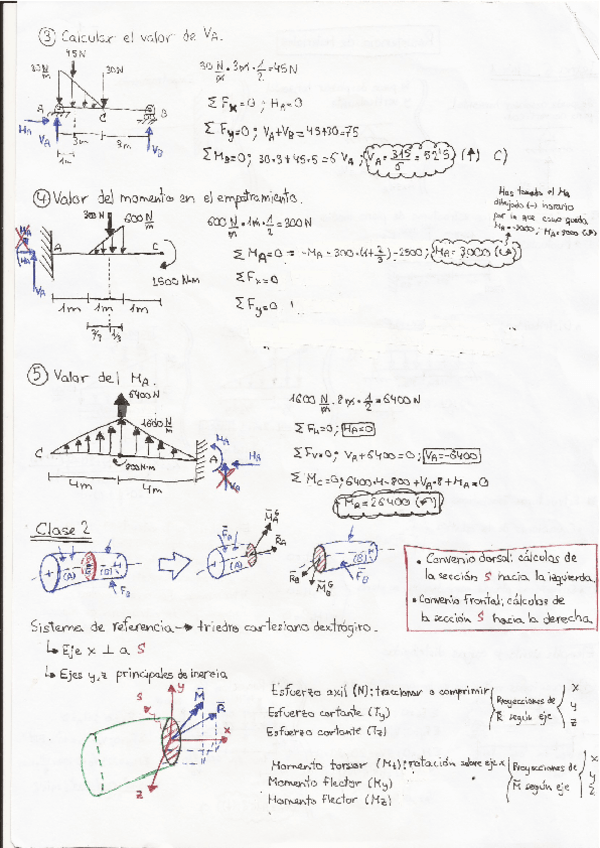 ③ Calcular el valor de VA.
45N
30 N/m
30N
A
C
B
HA
VA
3m
3m
VB
1m
30 N/m · 3m · 1/2 = 45N
ΣFx=0; HA=0
ΣFy=0; VA+VB=45+30=75
ΣMB=0; 30·3+45·5=6VA; VA=315/6=52'5 (↑) C)
④ Valor del momento en el empotramiento.
300N
600 N/m
MA
HA
A
C
VA
1500 N·m
1m
1m
1m
2/3
1/3
600 N/m · 1m · 1/2 = 300N
Has tomado el MA
dibujado (-) horario
por lo que
ΣFx=0
ΣFy=0
⑤ Valor del MA.
6400N
1600 N/m
C
A
MA
HA
VA
800N·m
4m
4m
1600 N/m · 8m · 1/2 = 6400N
ΣFx=0; HA=0
ΣFy=0; VA+6400=0; VA=-6400
ΣMC=0; 6400·4-800+VA·8+MA=0
MA=26400 (↶)
Clase 2
(A)
(B)
FB
FA
(A)
MA G
RA
RB
MB G
(B)
FB
• Convenio dorsal: cálculos de
la sección S hacia la izquierda.
• Convenio frontal: cálculos de
la sección S hacia la derecha.
Sistema de referencia → triedro cartesiano dextrógiro.
↳ Eje x ⊥ a S
↳ Ejes y, z principales de inercia
S
y
M
R
x
z
Esfuerzo axil (N): traccionar o comprimir
Esfuerzo cortante (Ty)
Esfuerzo cortante (Tz)
Proyecciones de
R según eje
x
y
z
Momento torsor (Mt): rotación sobre eje x
Momento flector (My)
Momento flector (Mz)
Proyecciones de
M según eje
x
y
z